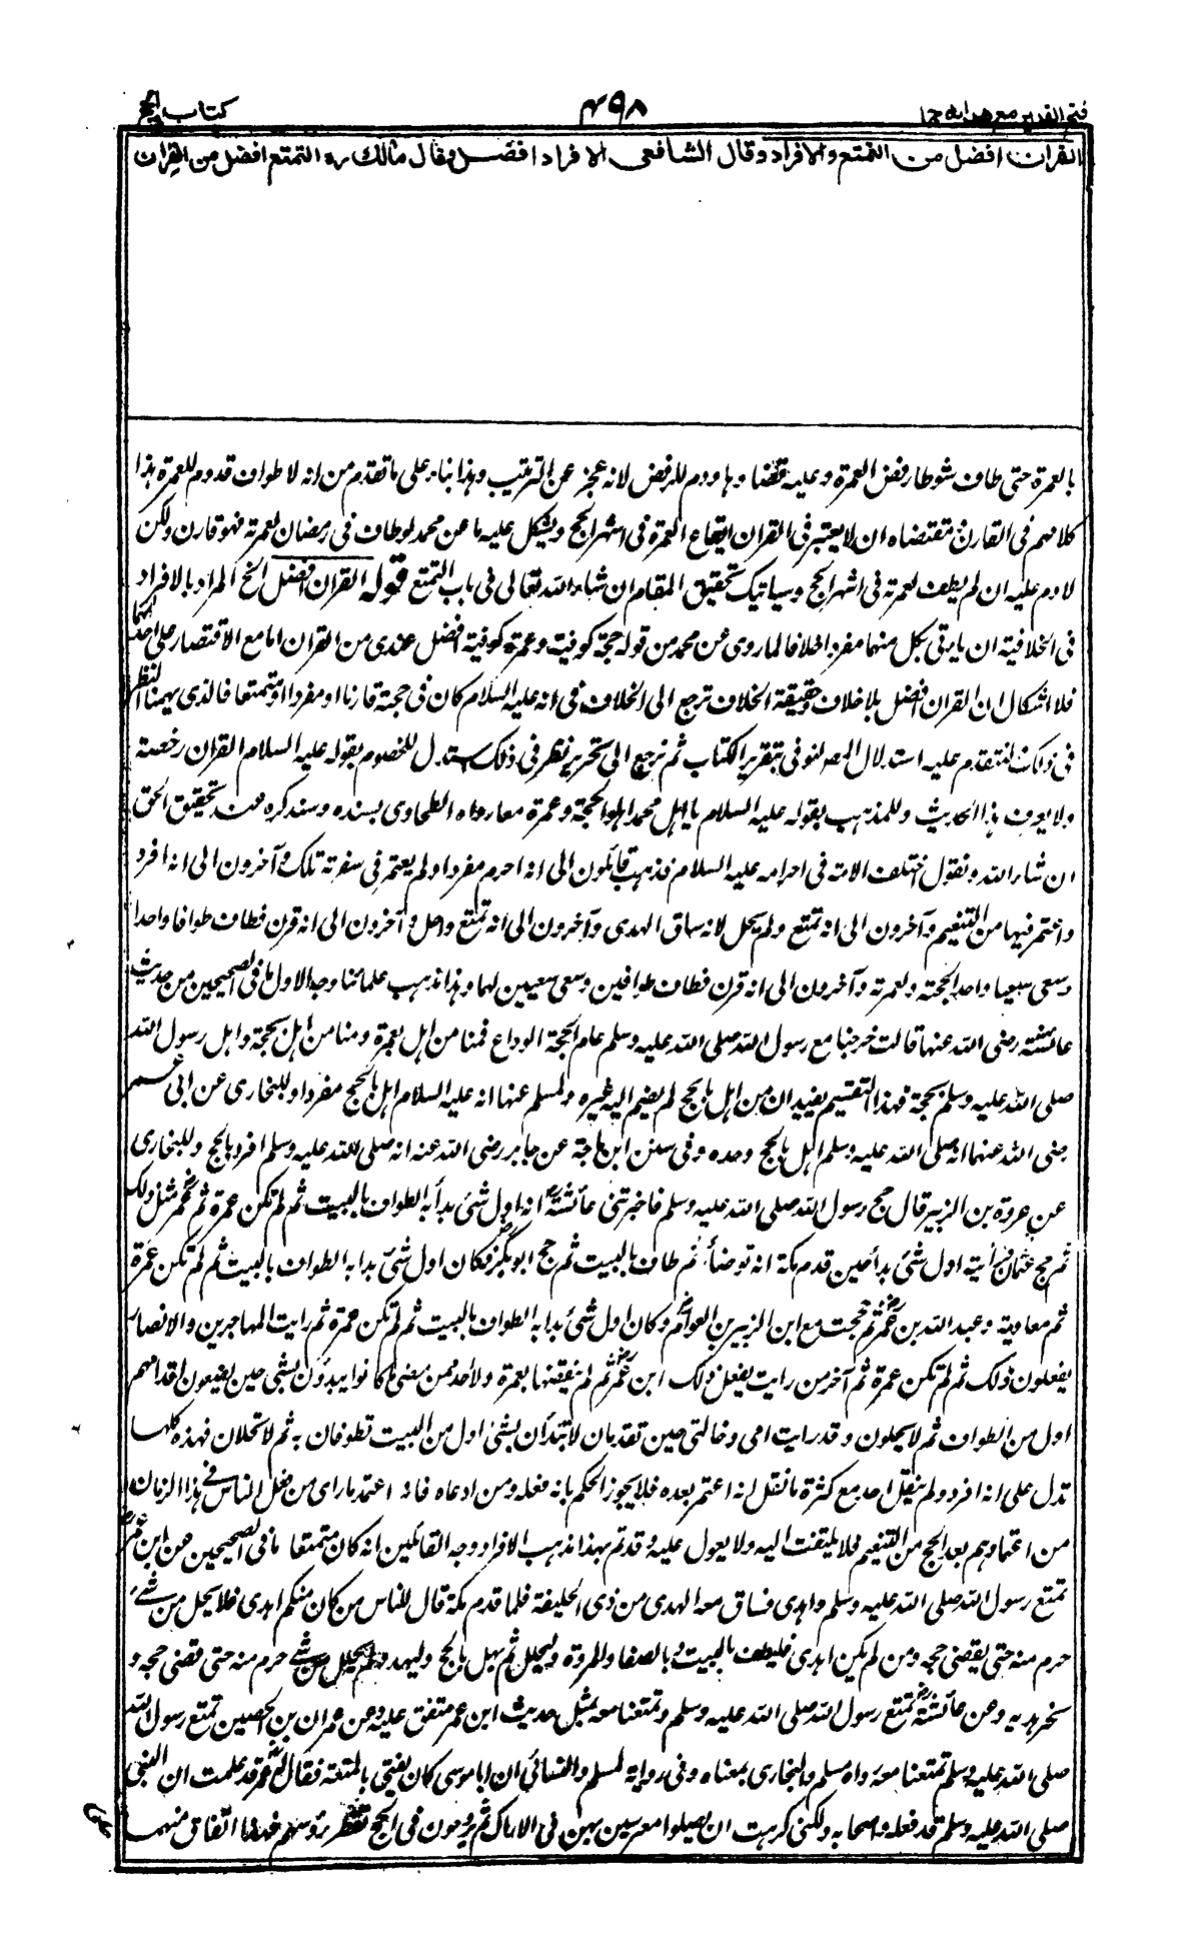 فتح القدير مع هدايه ج١
٤٩٨
كتاب الحج
القران افضل من التمتع والافراد وقال الشافعى الافراد افضل وقال مالك رہ التمتع افضل من القران
بالعمرة حتى طاف شوطا رفض العمرة وعليه قضاؤها ودم للرفض لانه عجز عن الترتيب وهذا بناء على ما تقدم من انه لا طواف قدوم للعمرة هذا
كلامهم فى القارن مقتضاه ان لا يعتبر فى القران ايقاع العمرة فى اشهر الحج ويشكل عليه ما عن محمد لو طاف فى رمضان لعمرته فهو قارن ولكن
لا دم عليه ان لم يطف لعمرته فى اشهر الحج وسياتيك تحقيق المقام ان شاء الله تعالى فى باب التمتع قوله القران افضل الخ المراد بالافراد
فى الخلافية ان ياتى بكل منهما مفردا خلافا لما روى عن محمد من قوله حجة كوفية وعمرة كوفية افضل عندى من القران اما مع الاقتصار على احدهما
فلا اشكال ان القران افضل بلا خلاف وحقيقة الخلاف ترجع الى الخلاف فى انه عليه السلام كان فى حجته قارنا او مفردا او متمتعا فالذى يهمنا النظر
فى ذلك ولنقدم عليه استدلال المصنف فى تقرير الكتاب ثم نرجع الى تحرير نظر فى ذلك استدل للخصوم بقوله عليه السلام القران رخصة
ولا يعرف هذا الحديث وللمذهب بقوله عليه السلام يا اهل محمد اهلوا بحجة وعمرة معا رواه الطحاوى بسنده وسنذكره عند تحقيق الحق
ان شاء الله ونقول اختلف الامة فى احرامه عليه السلام فذهب قائلون الى انه احرم مفردا ولم يعتمر فى سفرته تلك وآخرون الى انه افرد
واعتمر فيها من التنعيم وآخرون الى انه تمتع ولم يحل لانه ساق الهدى وآخرون الى انه تمتع وحل وآخرون الى انه قرن فطاف طوافا واحدا
وسعى سعيا واحدا لحجته ولعمرته وآخرون الى انه قرن فطاف طوافين وسعى سعيين لهما وهذا مذهب علمائنا وجه الاول ما فى الصحيحين من حديث
عائشة رضى الله عنها قالت خرجنا مع رسول الله صلى الله عليه وسلم عام حجة الوداع فمنا من اهل بعمرة ومنا من اهل بحجة واهل رسول الله
صلى الله عليه وسلم بحجة فهذا التقسيم يفيد ان من اهل بالحج لم يضم اليه غيره ولمسلم عنها انه عليه السلام اهل بالحج مفردا وللبخارى عن ابى عمر
رضى الله عنهما انه صلى الله عليه وسلم اهل بالحج وحده وفى سنن ابن ماجة عن جابر رضى الله عنه انه صلى الله عليه وسلم افرد بالحج وللبخارى
عن عروة بن الزبير قال حج رسول الله صلى الله عليه وسلم فاخبرتنى عائشة انه اول شئ بدأ به الطواف بالبيت ثم لم تكن عمرة ثم عمر مثل ذلك
ثم حج عثمان فرأيته اول شئ بدأ حين قدم مكة انه توضأ ثم طاف بالبيت ثم حج ابو بكر فكان اول شئ بدا به الطواف بالبيت ثم لم تكن عمرة
ثم معاوية وعبد الله بن عمر ثم حججت مع ابن الزبير بن العوام وكان اول شئ بدا به الطواف بالبيت ثم لم تكن عمرة ثم رايت المهاجرين والانصار
يفعلون ذلك ثم لم تكن عمرة ثم آخر من رايت يفعل ذلك ابن عمر ثم لم ينقضها بعمرة ولا احد ممن مضى ما كانوا يبدؤن بشئ حين يضعون اقدامهم
اول من الطواف ثم لا يحلون وقد رايت امى وخالتى حين تقدمان لا تبتدأن بشئ اول من البيت تطوفان به ثم لا تحلان فهذه كلها
تدل على انه افرد ولم ينقل احد مع كثرة ما نقل انه اعتمر بعده فلا يجوز الحكم بانه فعله ومن ادعاه فانما اعتمد ما راى من فعل الناس فى هذا الزمان
من اعتمارهم بعد الحج من التنعيم فلا يلتفت اليه ولا يعول عليه وقد تم بهذا مذهب الافراد وجه القائلين انه كان متمتعا ما فى الصحيحين عن ابن عمر
تمتع رسول الله صلى الله عليه وسلم واهدى فساق معه الهدى من ذى الحليفة فلما قدم مكة قال للناس من كان منكم اهدى فلا يحل من شئ
حرم منه حتى يقضى حجه ومن لم يكن اهدى فليطف بالبيت وبالصفا والمروة وليحلل ثم ليهل بالحج وليهد ولم يحلل من شئ حرم منه حتى قضى حجه و
نحر هديه وعن عائشة تمتع رسول الله صلى الله عليه وسلم وتمتعنا معه بمثل حديث ابن عمر متفق عليه وعن عمران بن الحصين تمتع رسول الله
صلى الله عليه وسلم تمتعنا معه رواه مسلم والبخارى بمعناه وفى رواية لمسلم والنسائى ان ابا موسى كان يفتى بالمتعة فقال له عمر قد علمت ان النبى
صلى الله عليه وسلم قد فعله واصحابه ولكنى كرهت ان يظلوا معرسين بهن فى الاراك ثم يروحون فى الحج تقطر رؤسهم فهذا اتفاق منهما